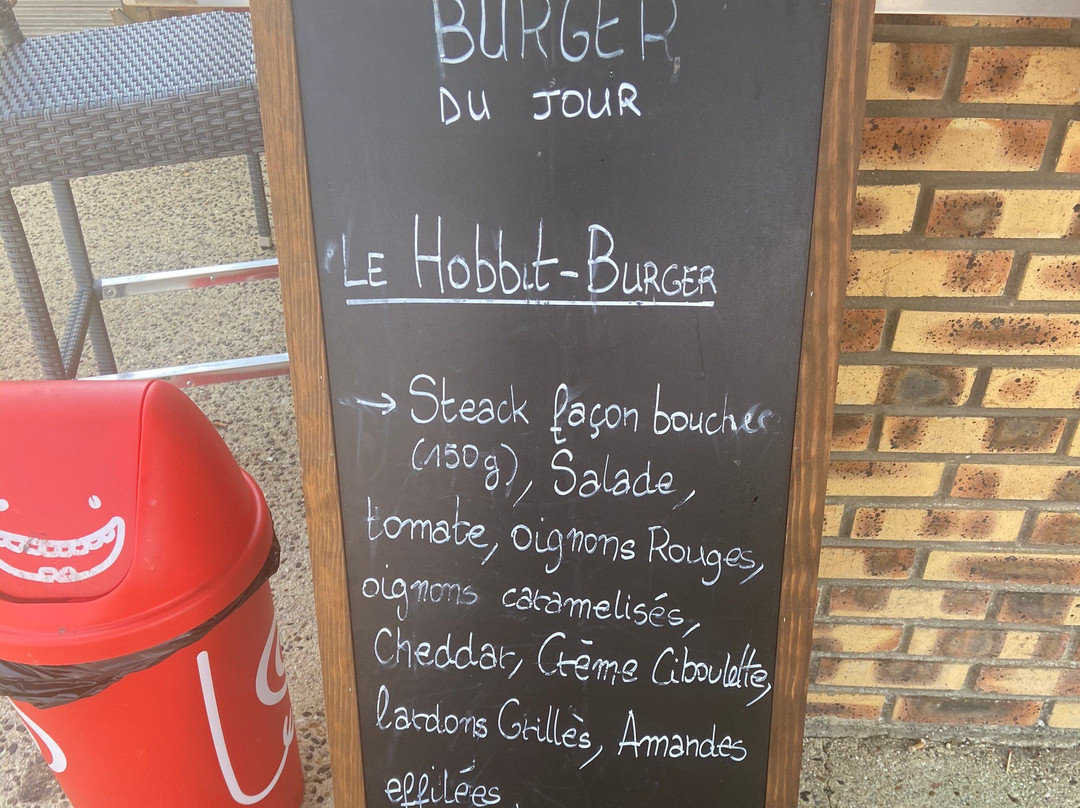 BURGER
DU JOUR
LE Hobbit-BURGER
→ Steack façon boucher
(150g), Salade,
tomate, oignons Rouges,
oignons caramelisés,
Cheddar, Crème Ciboulette,
lardons Grillès, Amandes
effilées